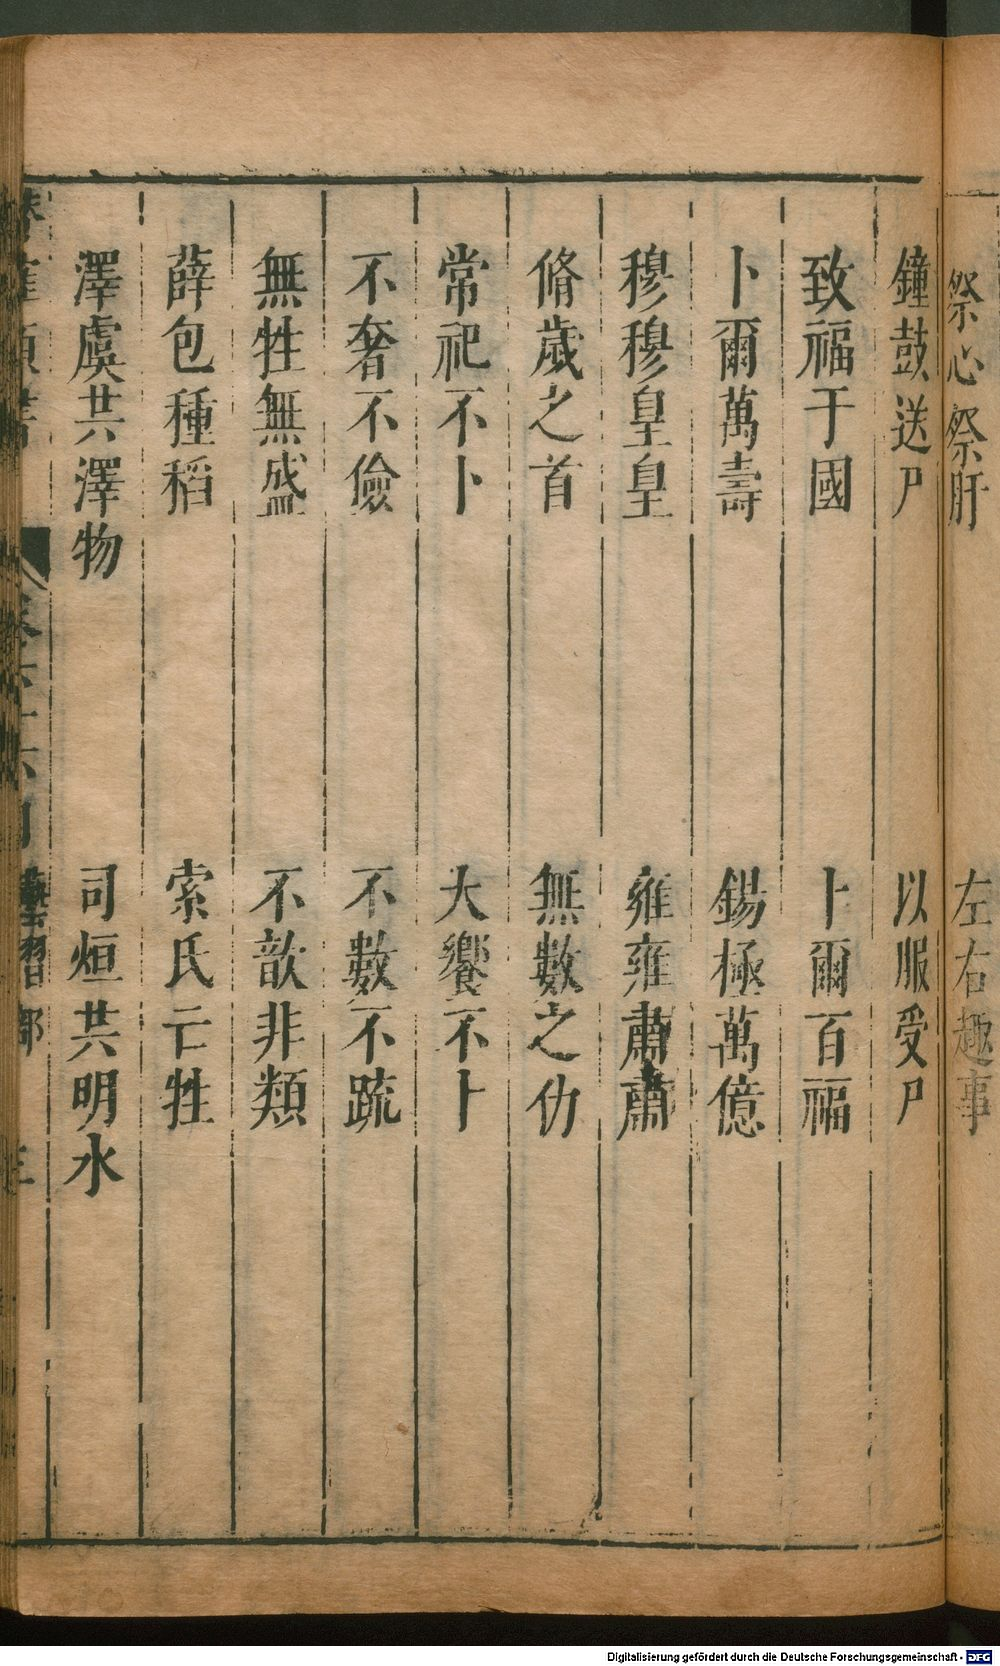 祭心祭肝 左右趣事
鐘鼓送尸 以服受尸
致福于國 卜爾百福
卜爾萬壽 錫極萬億
穆穆皇皇 雍雍肅肅
脩歲之首 無數之仂
常祀不卜 大饗不卜
不奢不儉 不數不䟽
無牲無盛 不歆非類
薛包種稻 索氏亡牲
澤虞共澤物 司烜共明水
卷六十六目 部 三
Digitalisierung gefördert durch die Deutsche Forschungsgemeinschaft - DFG